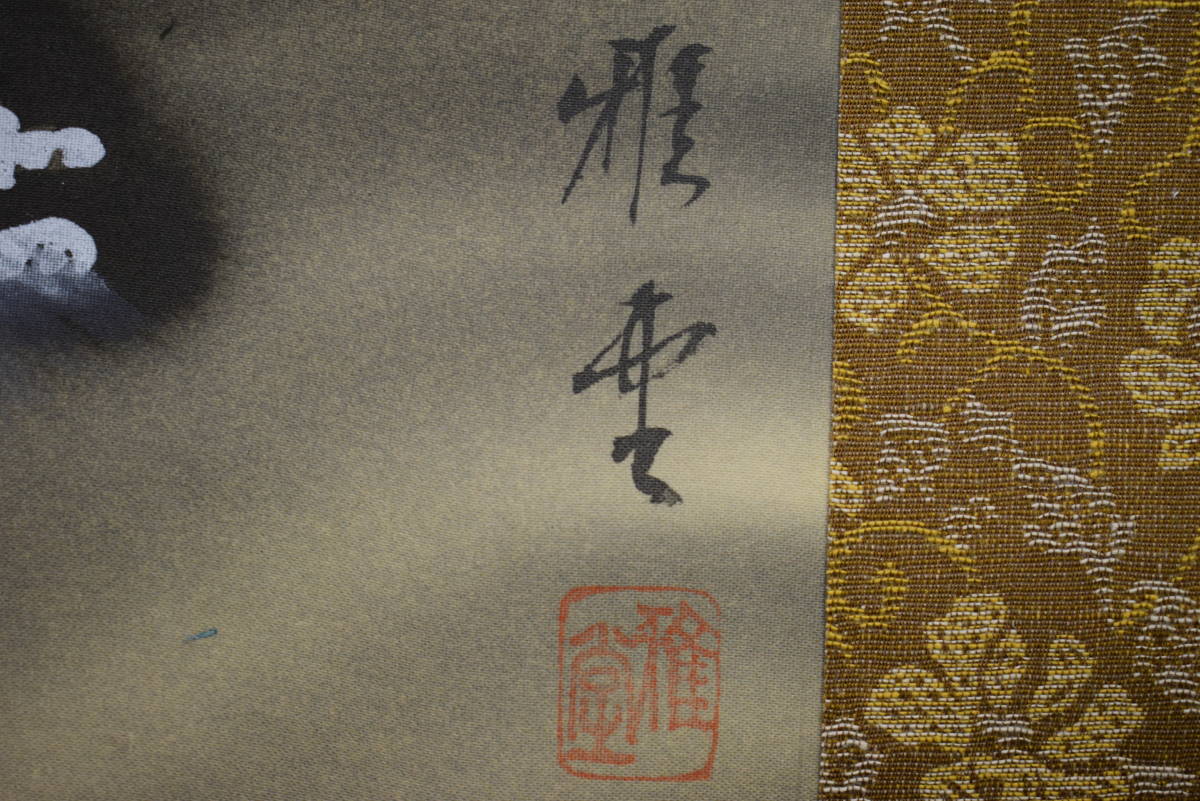 雅堂
雅堂